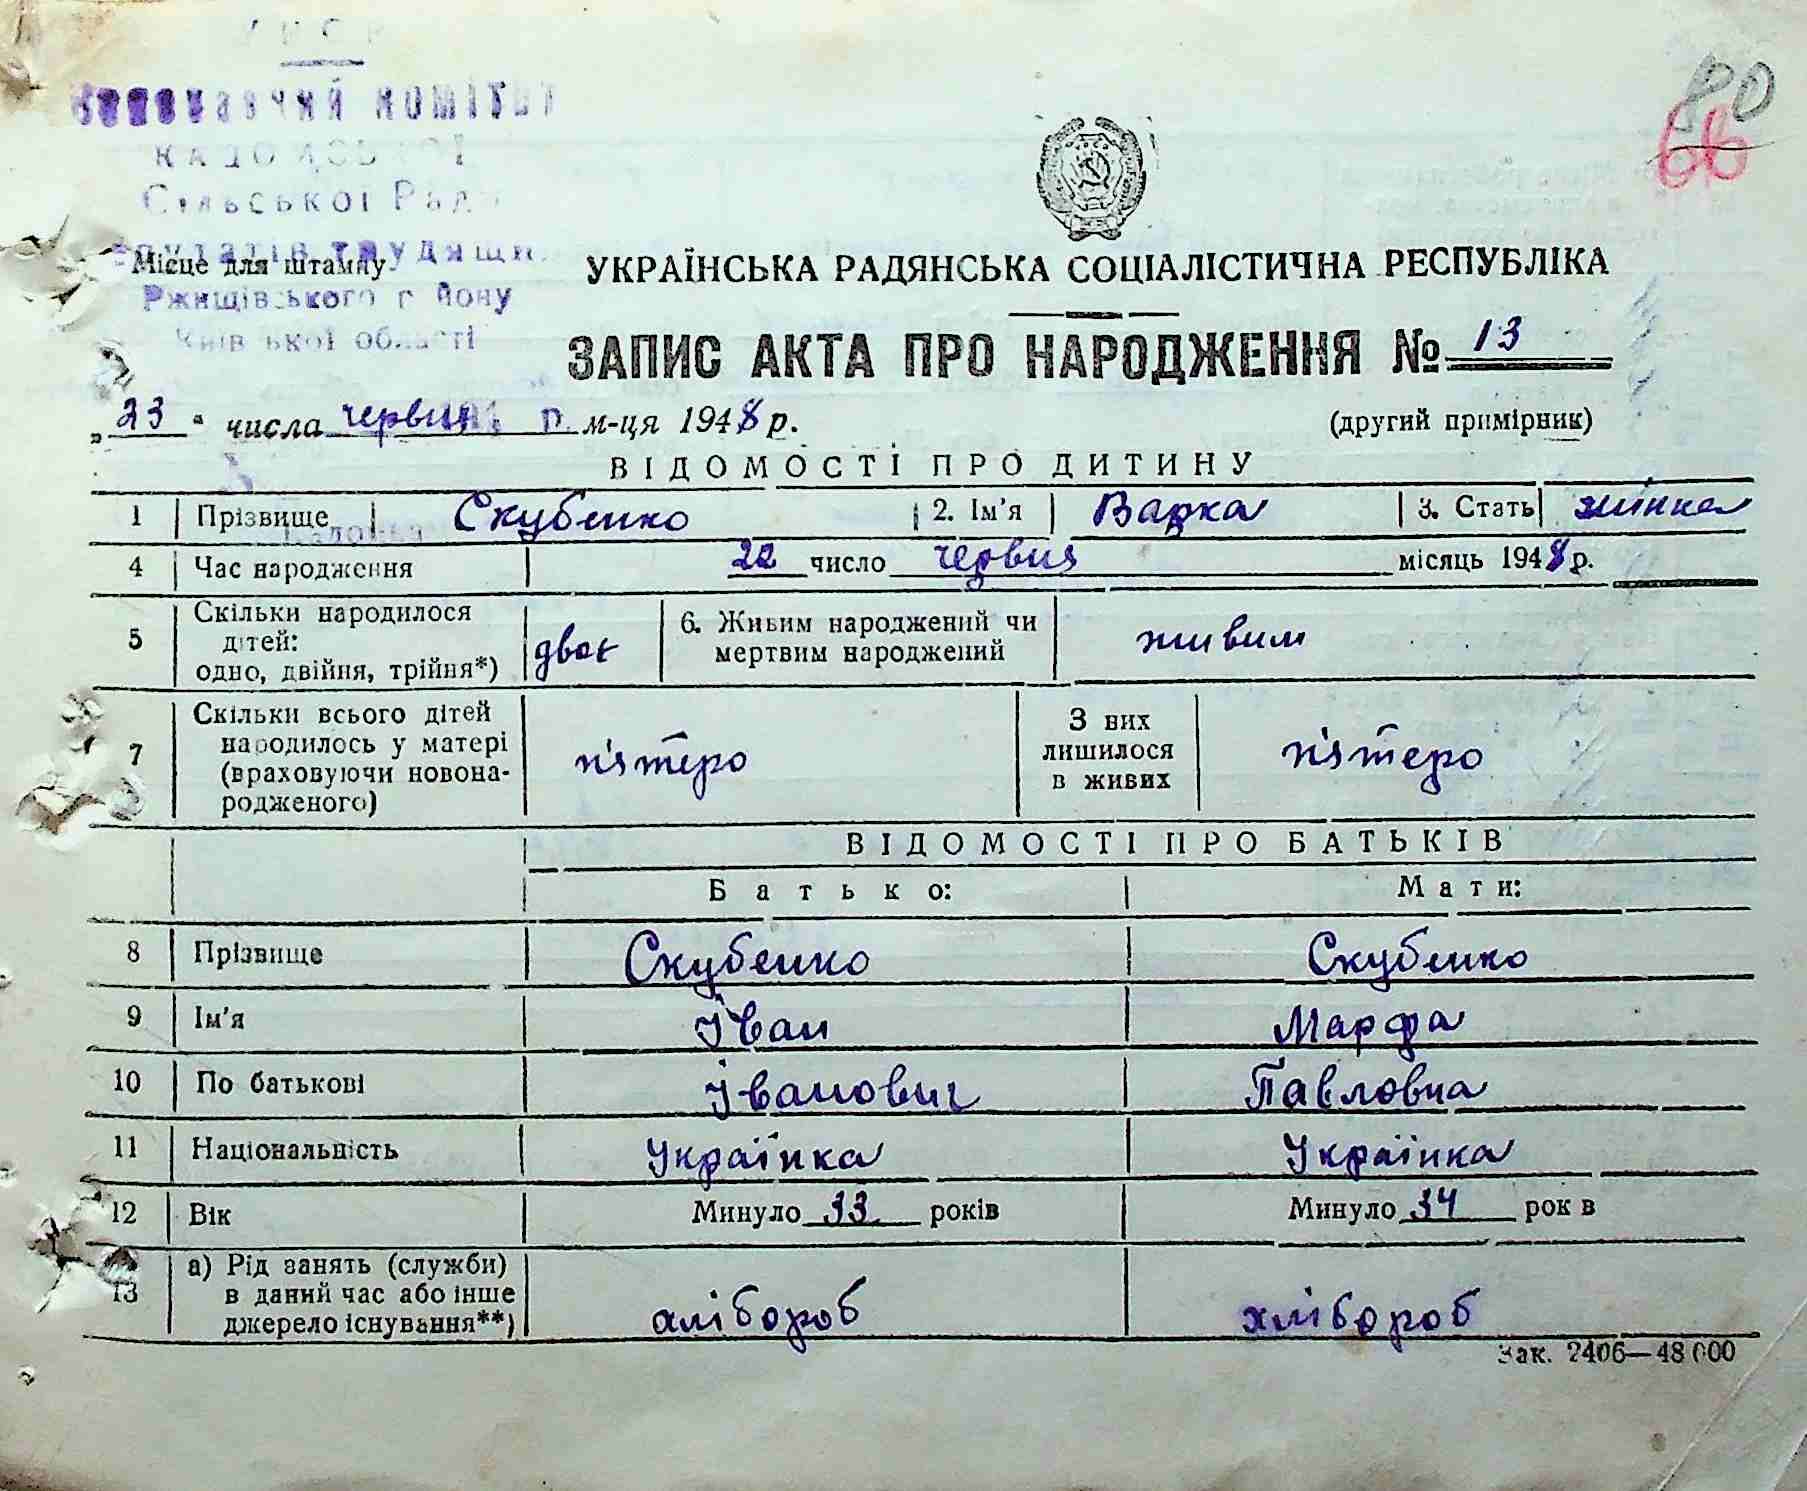 УРСР
Виконавчий комітет
Сільської Ради
депутатів трудящих
Місце для штампу
Ржищівського району
Київської області
80
66
УКРАЇНСЬКА РАДЯНСЬКА СОЦІАЛІСТИЧНА РЕСПУБЛІКА
ЗАПИС АКТА ПРО НАРОДЖЕННЯ № 13
„23“ числа червня м-ця 1948 р. (другий примірник)
ВІДОМОСТІ ПРО ДИТИНУ
1 Прізвище Скубенко 2. Ім'я Варка 3. Стать жінка
4 Час народження 22 число червня місяць 1948 р.
5 Скільки народилося дітей: одно, двійня, трійня*) двоє 6. Живим народжений чи мертвим народжений живим
7 Скільки всього дітей народилось у матері (враховуючи новонародженого) п'ятеро З них лишилося в живих п'ятеро
ВІДОМОСТІ ПРО БАТЬКІВ
Батько: Мати:
8 Прізвище Скубенко Скубенко
9 Ім'я Іван Марфа
10 По батькові Іванович Павловна
11 Національність Українка Українка
12 Вік Минуло 33 років Минуло 34 років
13 а) Рід занять (служби) в даний час або інше джерело існування**) хлібороб хлібороб
Зак. 2406—48 000